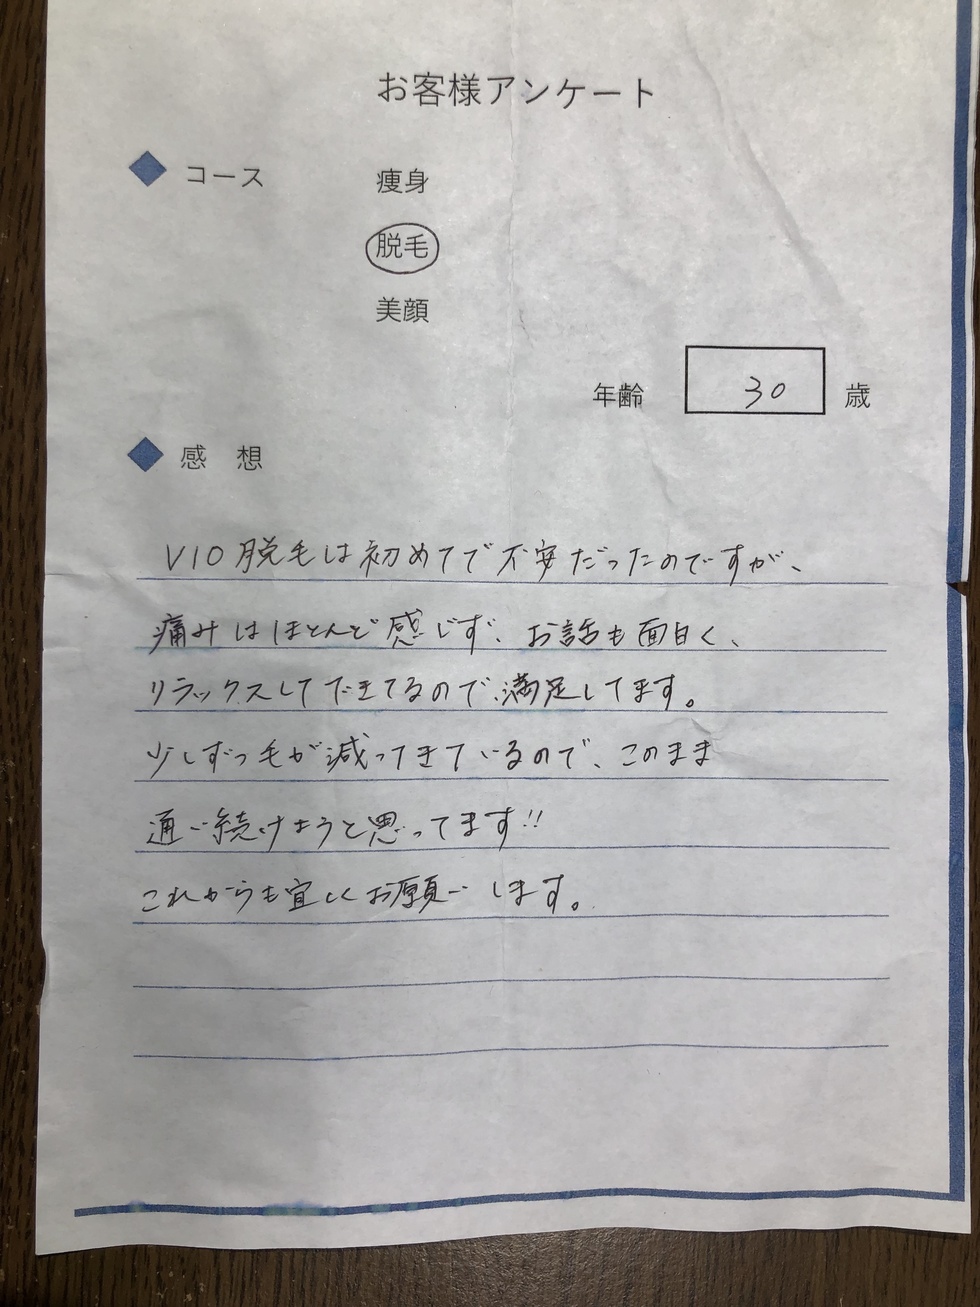 お客様アンケート
◆ コース 痩身
脱毛
美顔
年齢 30 歳
◆ 感 想
VIO脱毛は初めてで不安だったのですが、
痛みはほとんど感じず、お話も面白く、
リラックスしてできてるので、満足してます。
少しずつ毛が減ってきているので、このまま
通い続けようと思ってます!!
これからも宜しくお願いします。